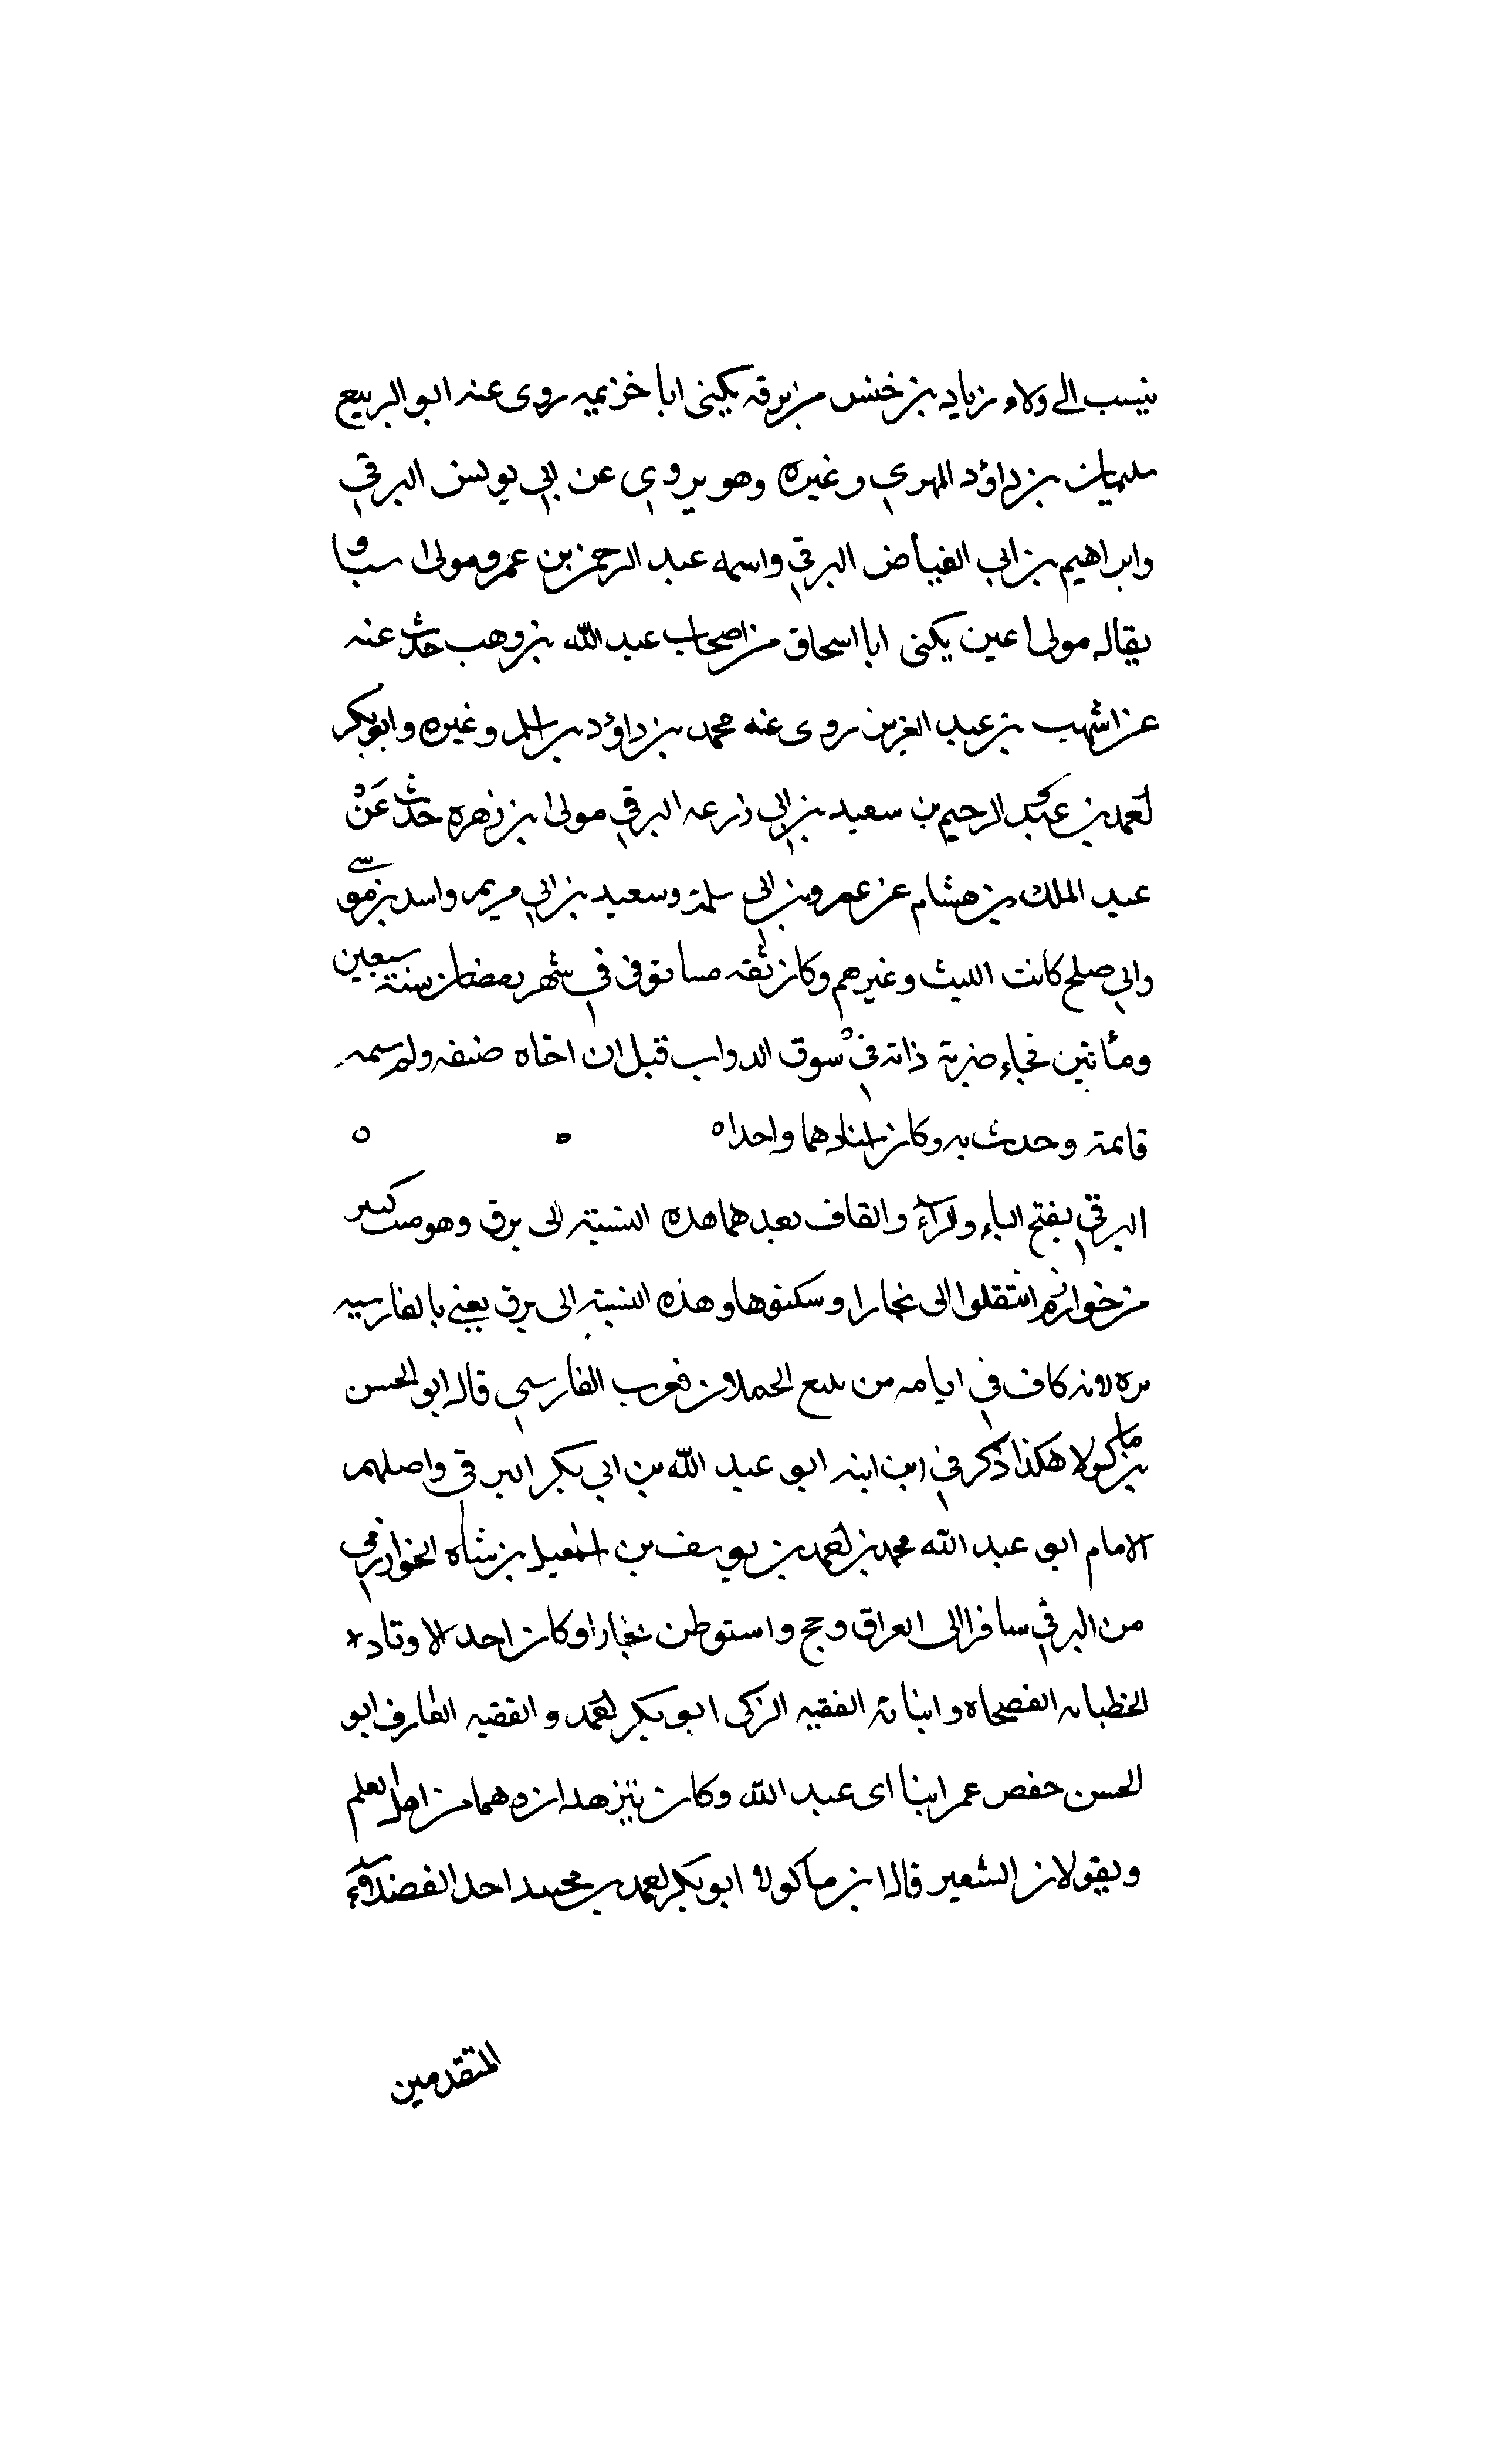 ينسب الى ولاء زياد بن خنس من برقه يكنى ابا خزيمه روى عنه ابو الربيع
سليمان بن داؤد المهري وغيره وهو يروي عن ابي يونس البرقي
وابراهيم بن ابي الفياض البرقي واسمه عبد الرحمن بن عمرو مولى سبا و
يقال مولى اعين يكنى ابا اسحاق من اصحاب عبد الله بن وهب حدث عنه
عن اشهب بن عبد العزيز روى عنه محمد بن داؤد بن اسلم وغيره وابو بكر
احمد بن عبد الرحيم بن سعيد بن ابي زرعه البرقي مولى ابن زهره حدث عَنْ
عبد الملك بن هشام عن عمرو بن ابي سلمة وسعيد بن ابي مريم واسد بن موسى
وابي صلح كاتب الليث وغيرهم وكان ثقه توفى في شهر رمضان سنة سبعين
ومأتين فجاء ضربة دابة في سوق الدواب قبل ان اخاه صنفه ولم
قايمة وحدث به وكان اسنادهما واحدا ه ه ه
البرقي بفتح الباء والراء والقاف بعدهما هذه النسبة الى برق وهو بيت كبير
من خوارزم انتقلوا الى بخارا وسكنوها وهذه النسبة الى برق يعني بالفارسيه
بره لانه كان في ايامه من بيع الحملان فعرب الفارسي قال ابو الحسن
بن ماكولا هكذا ذكر في ابن ابنه ابو عبد الله بن ابي بكر البرقي واصلهم
الامام ابو عبد الله محمد بن احمد بن يوسف بن اسمعيل بن شاه الخوارزمي
من البرقي سافر الى العراق وحج واستوطن بخارا وكان احد الاوتاد
الخطباء الفصحاء وابناه الفقيه الزكى ابو بكر احمد والفقيه العارف ابو
الحسن حفص عمر ابنا اى عبد الله وكان وهما من اهل العلم
ويقولان الشعير قال ابن ماكولا ابو بكر احمد بن محمد احد الفضلاء
المتقدمين